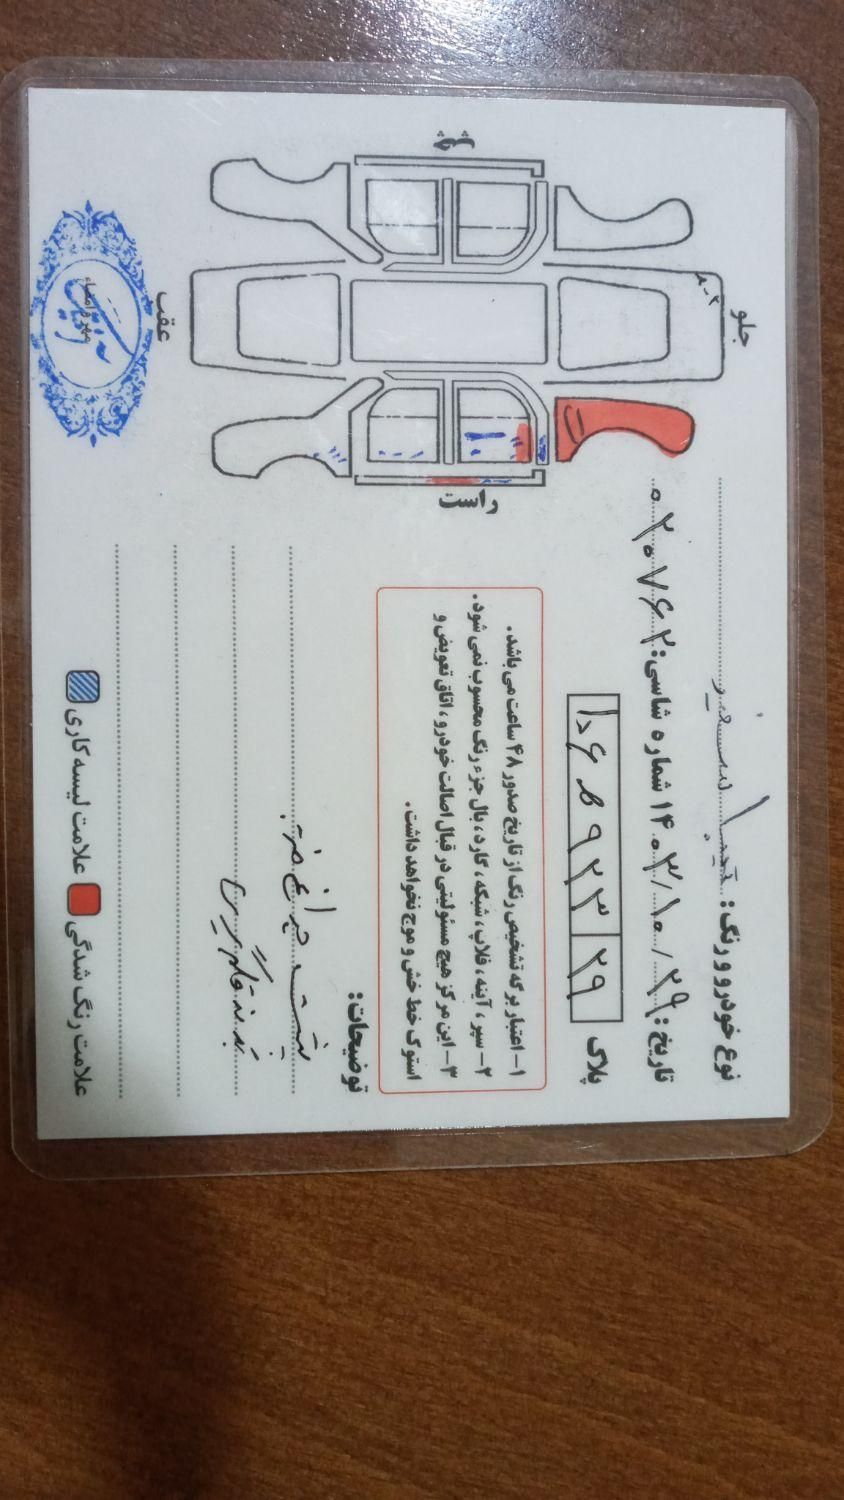 نوع خودرو و رنگ: تیبا سفید
تاریخ: ۱۴۰۳/۱۰/۲۹ شماره شاسی: ۰۲۰۷۶۲
پلاک
۲۹ ۹۲۳
۱- اعتبار برگه تشخیص رنگ از تاریخ صدور ۴۸ ساعت می باشد.
۲- سپر، آینه، قلاب، شبکه، گارد، بال جزء رنگ محسوب نمی شود.
۳- این مرکز هیچ مسئولیتی در قبال اصالت خودرو، اتاق تعویض و
استوک خط خش و موج نخواهد داشت.
توضیحات:
پشت چراغ
علامت رنگ شدگی علامت لیسه کاری
چپ
جلو
عقب
راست
مهر و امضاء